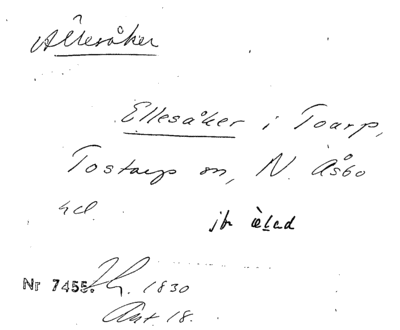 Ällesåker
Ellesåker i Toarp,
Tostarp sn, N. Åsbo
hd.
jfr èlad
Nr 7455. 1830
Ant. 18.